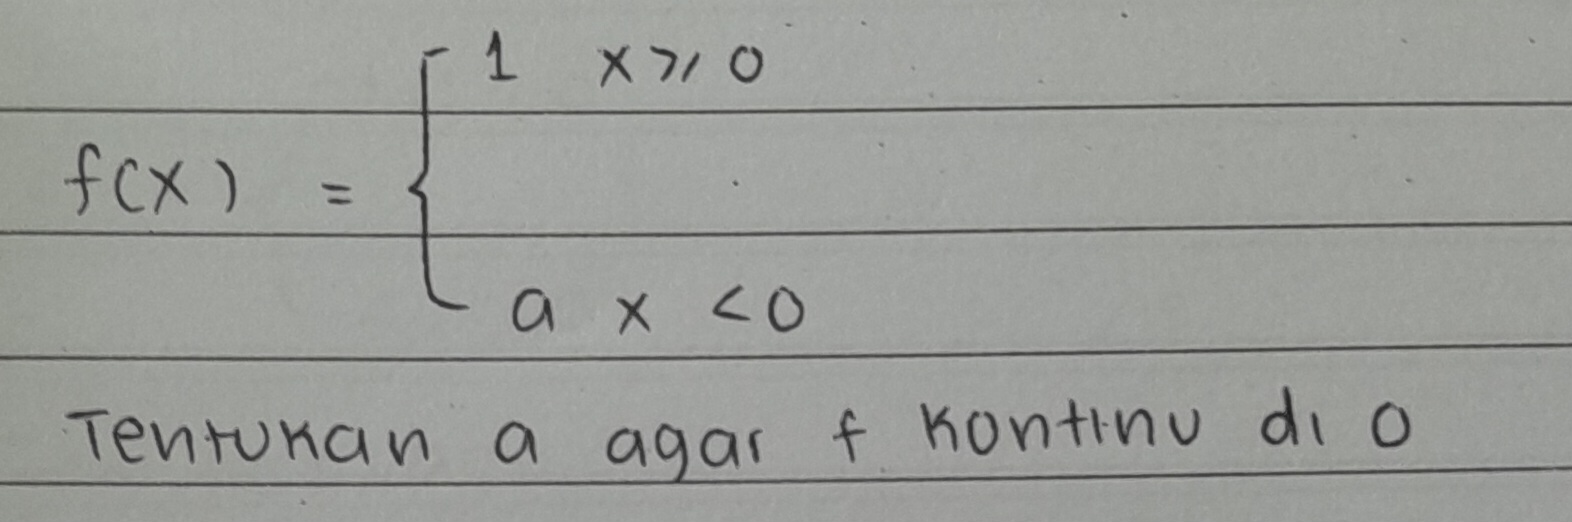 1 x ≥ 0
f(x) = {
a x < 0
Tentukan a agar f kontinu di 0